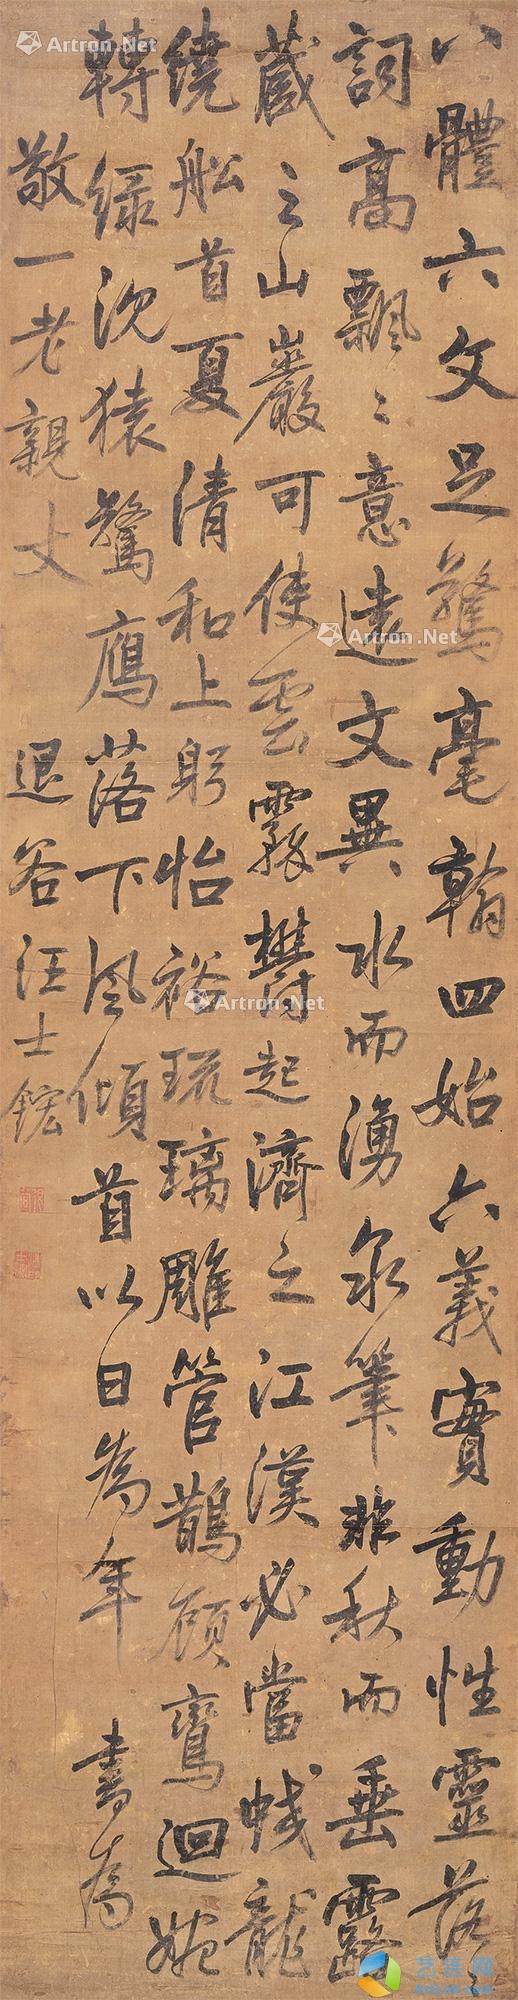 八體六文足驚毫翰四始六義實動性靈落〻
詞高飄〻意遠文異水而湧泉筆非秋而垂露
藏之山巖可使雲霧鬱起濟之江漢必當蛟龍
繞船首夏清和上躬怡裕琉璃雕管鵲顧鸞迴婉
轉綠沈猿驚鴈落下風傾首以日為年 書為
敬一老親丈 退谷汪士鋐
Artron.Net
Artron.Net
Artron.Net
Artron.Net
Artron.Net
艺连网